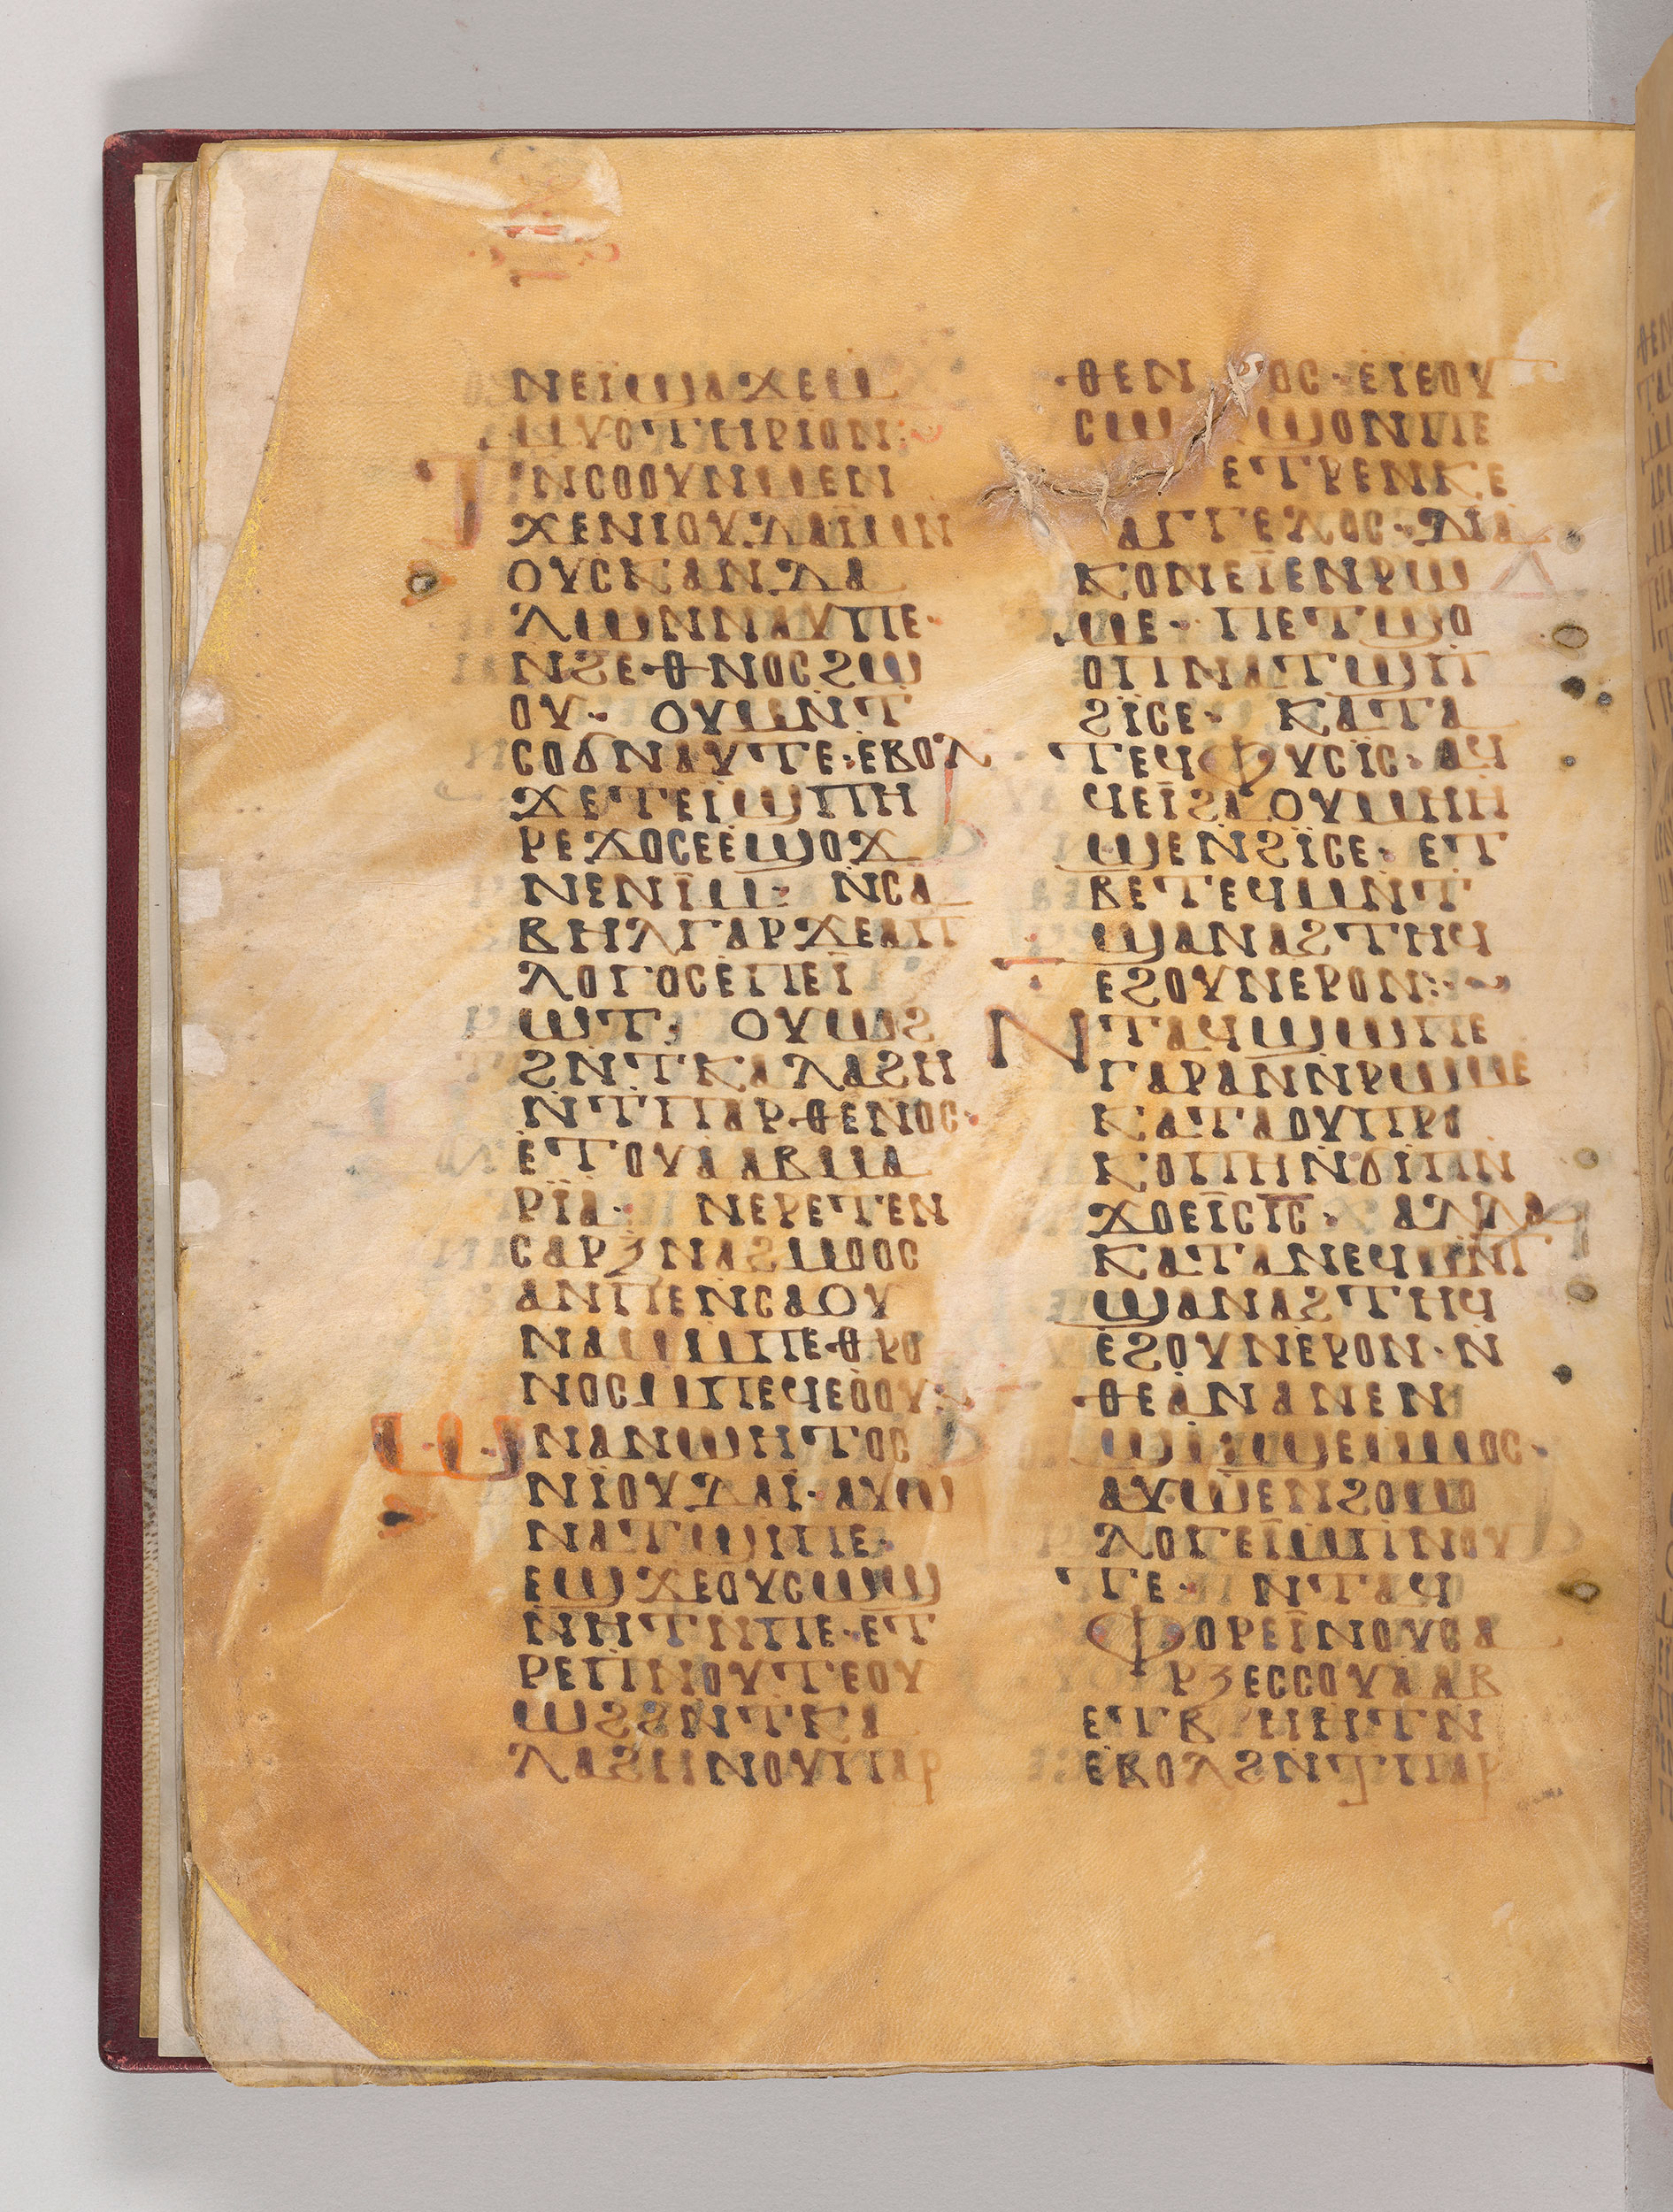 ⲛⲉⲓ̈ϣⲁϫⲉⲙ
ⲙⲩⲥⲧⲏⲣⲓⲟⲛ:
ⲧⲛⲥⲟⲟⲩⲛⲙⲉⲛ
ϫⲉⲛⲓⲟⲩⲇⲁⲓ̈ⲙⲉⲛ
ⲟⲩⲥⲕⲁⲛⲇⲁ
ⲗⲱⲛⲛⲁⲩⲡⲉ·
ⲛϩⲉⲑⲛⲟⲥϩⲱ
ⲟⲩ· ⲟⲩⲙⲛⲧ
ⲥⲟϭⲛⲁⲩⲧⲉ·ⲉⲃⲟⲗ
ϫⲉⲧⲉⲓ̈ϣⲡⲏ
ⲣⲉϫⲟⲥⲉⲉϣⲟϫ
ⲛⲉⲛⲓⲙ· ⲛⲥⲁ
ⲃⲏⲗⲅⲁⲣϫⲉⲁⲡ
ⲗⲟⲅⲟⲥⲉⲡⲉⲓ̈
ⲱⲧ· ⲟⲩⲱϩ
ϩⲛⲧⲕⲁⲗⲁϩⲏ
ⲛⲧⲡⲁⲣⲑⲉⲛⲟⲥ·
ⲉⲧⲟⲩⲁⲁⲃⲙⲁ
ⲣⲓ̈ⲁ· ⲛⲉⲣⲉⲧⲉⲛ
ⲥⲁⲣⲝⲛⲁϩⲙⲟⲟⲥ
ⲁⲛⲡⲉⲛⲥⲁⲟⲩ
ⲛⲁⲙⲙⲡⲉⲑⲣⲟ
ⲛⲟⲥⲙⲡⲉϥⲉⲟⲟⲩ:
ϣⲛⲁⲛⲱⲏⲧⲟⲥ
ⲛⲓ̈ⲟⲩⲇⲁⲓ̈·ⲁⲩⲱ
ⲛⲁⲧϣⲓⲡⲉ·
ⲉϣϫⲉⲟⲩⲥⲱϣ
ⲛⲏⲧⲛⲡⲉ·ⲉⲧ
ⲣⲉⲡⲛⲟⲩⲧⲉⲟⲩ
ⲱϩϩⲛⲧⲕⲁ
ⲗⲁϩⲏⲛⲟⲩⲡⲁⲣ
ⲑⲉⲛⲟⲥ·ⲉⲓⲉⲟⲩ
ⲥⲱϣⲟⲛⲡⲉ
ⲉⲧⲣⲉⲛⲕⲉ
ⲁⲅⲅⲉⲗⲟⲥ·ⲇⲓⲁ
ⲕⲟⲛⲉⲓ̈ⲉⲛⲣⲱ
ⲙⲉ· ⲡⲉⲧϣⲟ
ⲟⲡⲛⲁⲧϣⲡ
ϩⲓ̈ⲥⲉ· ⲕⲁⲧⲁ
ⲧⲉϥⲫⲩⲥⲓⲥ·ⲁϥ
ϥⲉⲓ̈ϩⲁⲟⲩⲙⲏⲏ
ϣⲉⲛϩⲓ̈ⲥⲉ· ⲉⲧ
ⲃⲉⲧⲉϥⲙⲛⲧ
ϣⲁⲛⲁϩⲧⲏϥ
ⲉϩⲟⲩⲛⲉⲣⲟⲛ:
ⲛⲧⲁϥϣⲱⲡⲉ
ⲅⲁⲣⲁⲛⲛⲣⲱⲙⲉ
ⲕⲁⲧⲁⲟⲩⲡⲣⲟ
ⲕⲟⲡⲏⲛϭⲓⲡⲛ
ϫⲟⲉⲓⲥⲓⲥ· ⲁⲗⲗⲁ
ⲕⲁⲧⲁⲛⲉϥⲙⲛⲧ
ϣⲁⲛⲁϩⲧⲏϥ
ⲉϩⲟⲩⲛⲉⲣⲟⲛ·ⲛ
ⲑⲉⲁⲛⲁⲛⲉⲛ
ϣⲣⲡϣⲉⲙⲙⲟⲥ·
ⲁⲩⲱⲉⲛϩⲟⲙⲟ
ⲗⲟⲅⲉⲓ̈ⲙⲡⲛⲟⲩ
ⲧⲉ· ⲛⲧⲁϥ
ⲫⲟⲣⲉⲓ̈ⲛⲟⲩⲥⲁ
ⲣⲝⲉⲥⲥⲟⲩⲁⲁⲃ
ⲉⲃⲟⲗϩⲛⲧⲡⲁⲣ